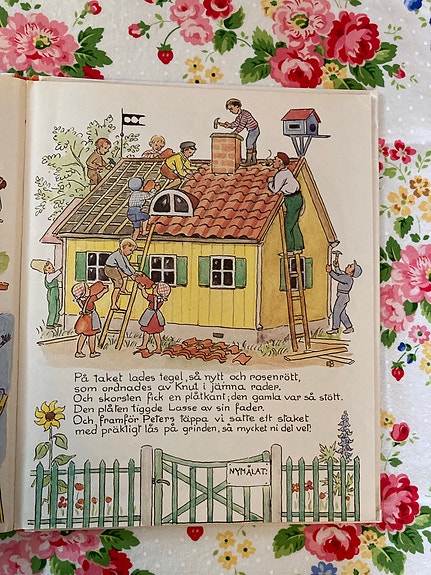 På taket lades tegel, så nytt och rosenrött,
som ordnades av Knut i jämna rader.
Och skorsten fick en plåtkant; den gamla var så stött.
Den plåten tiggde Lasse av sin fader.
Och framför Peters täppa vi satte ett staket
med präktigt lås på grinden, så mycket ni det vet!
NYMÅLAT!